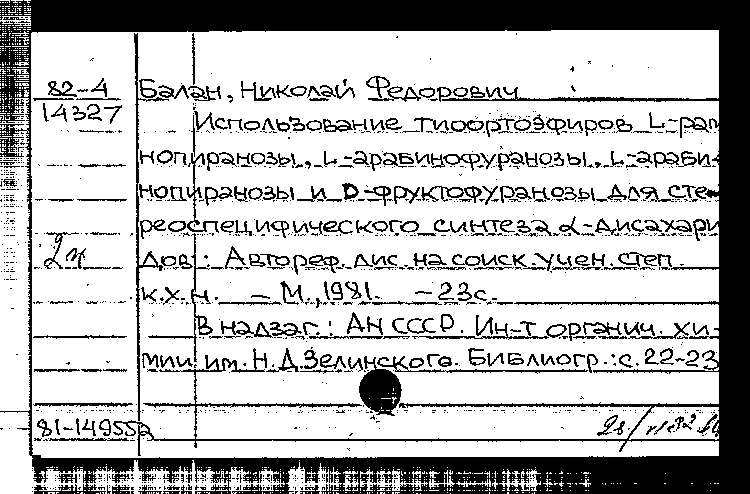 82-4
14327
Балан, Николай Федорович
Использование тиоортоэфиров L-рам
нопиранозы, L-арабинофуранозы, L-араби-
нопиранозы и D-фруктофуранозы для сте-
реоспецифического синтеза α-дисахари
дов : Автореф. дис. на соиск. учен. степ.
к.х.н. – М., 1981. – 23с.
В надзаг.: АН СССР. Ин-т органич. хи-
мии им. Н.Д.Зелинского. Библиогр.: с. 22-23
81-149552